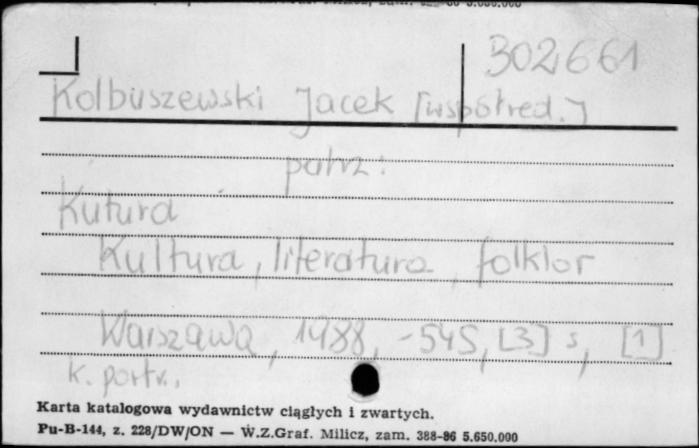 302661
Kolbuszewski Jacek [współred.]
patrz:
Kutura
Kultura, literatura, folklor
Warszawa, 1988, - 545, [3] s, [1]
k. portr.,
Karta katalogowa wydawnictw ciągłych i zwartych.
Pu-B-144, z. 228/DW/ON — W.Z.Graf. Milicz, zam. 388-86 5.650.000